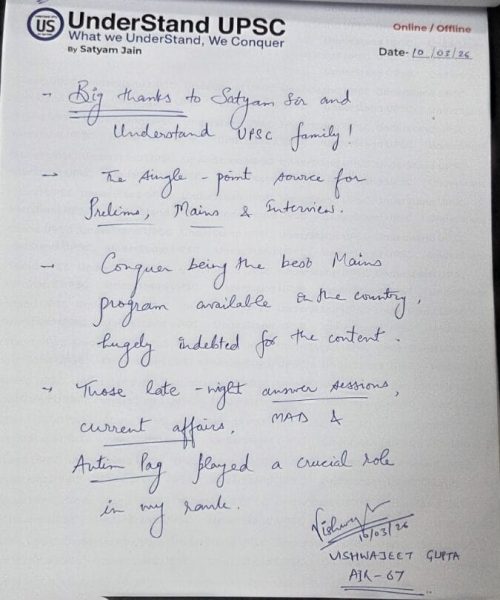 US
UnderStand UPSC
What we UnderStand, We Conquer
By Satyam Jain
Online / Offline
Date- 10/03/26
- Big thanks to Satyam Sir and
Understand UPSC family!
- The single-point source for
Prelims, Mains & Interview.
- Conquer being the best Mains
program available in the country,
hugely indebted for the content.
- Those late-night answer sessions,
current affairs, MAD &
Antim Pag played a crucial role
in my rank.
10/03/26
VISHWAJEET GUPTA
AIR-67